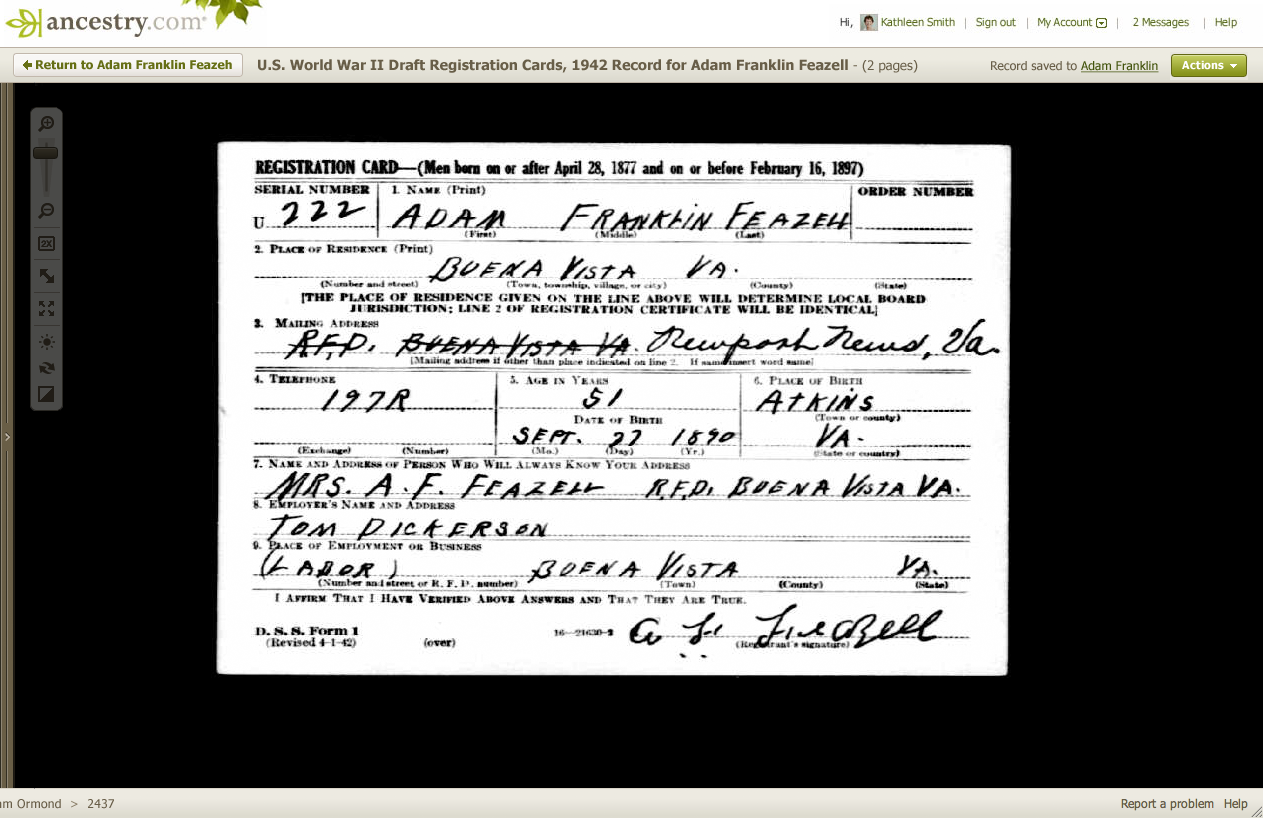 ancestry.com
Hi, Kathleen Smith | Sign out | My Account | 2 Messages | Help
Return to Adam Franklin Feazeh
U.S. World War II Draft Registration Cards, 1942 Record for Adam Franklin Feazell - (2 pages)
Record saved to Adam Franklin
Actions
2X
REGISTRATION CARD—(Men born on or after April 28, 1877 and on or before February 16, 1897)
SERIAL NUMBER 1. NAME (Print) ORDER NUMBER
U 222 ADAM FRANKLIN FEAZELL
(First) (Middle) (Last)
2. PLACE OF RESIDENCE (Print)
BUENA VISTA VA.
(Number and street) (Town, township, village, or city) (County) (State)
[THE PLACE OF RESIDENCE GIVEN ON THE LINE ABOVE WILL DETERMINE LOCAL BOARD
JURISDICTION; LINE 2 OF REGISTRATION CERTIFICATE WILL BE IDENTICAL]
3. MAILING ADDRESS
R.F.D. BUENA VISTA VA. Newport News, Va.
[Mailing address if other than place indicated on line 2. If same insert word same]
4. TELEPHONE 5. AGE IN YEARS 6. PLACE OF BIRTH
197R 51 ATKINS
DATE OF BIRTH (Town or county)
SEPT. 27 1890 VA.
(Exchange) (Number) (Mo.) (Day) (Yr.) (State or country)
7. NAME AND ADDRESS OF PERSON WHO WILL ALWAYS KNOW YOUR ADDRESS
MRS. A. F. FEAZELL R.F.D. BUENA VISTA VA.
8. EMPLOYER'S NAME AND ADDRESS
TOM DICKERSON
9. PLACE OF EMPLOYMENT OR BUSINESS
(LABOR) BUENA VISTA VA.
(Number and street or R. F. D. number) (Town) (County) (State)
I AFFIRM THAT I HAVE VERIFIED ABOVE ANSWERS AND THAT THEY ARE TRUE.
D. S. S. Form 1 16—21630-2 A F Feazell
(Revised 4-1-42) (over) (Registrant's signature)
am Ormond > 2437
Report a problem Help